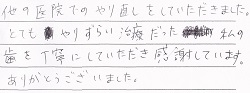 他の医院でのやり直しをしていただきました。
とてもやりずらい治療だったのに私の
歯を丁寧にしていただき感謝しています。
ありがとうございました。